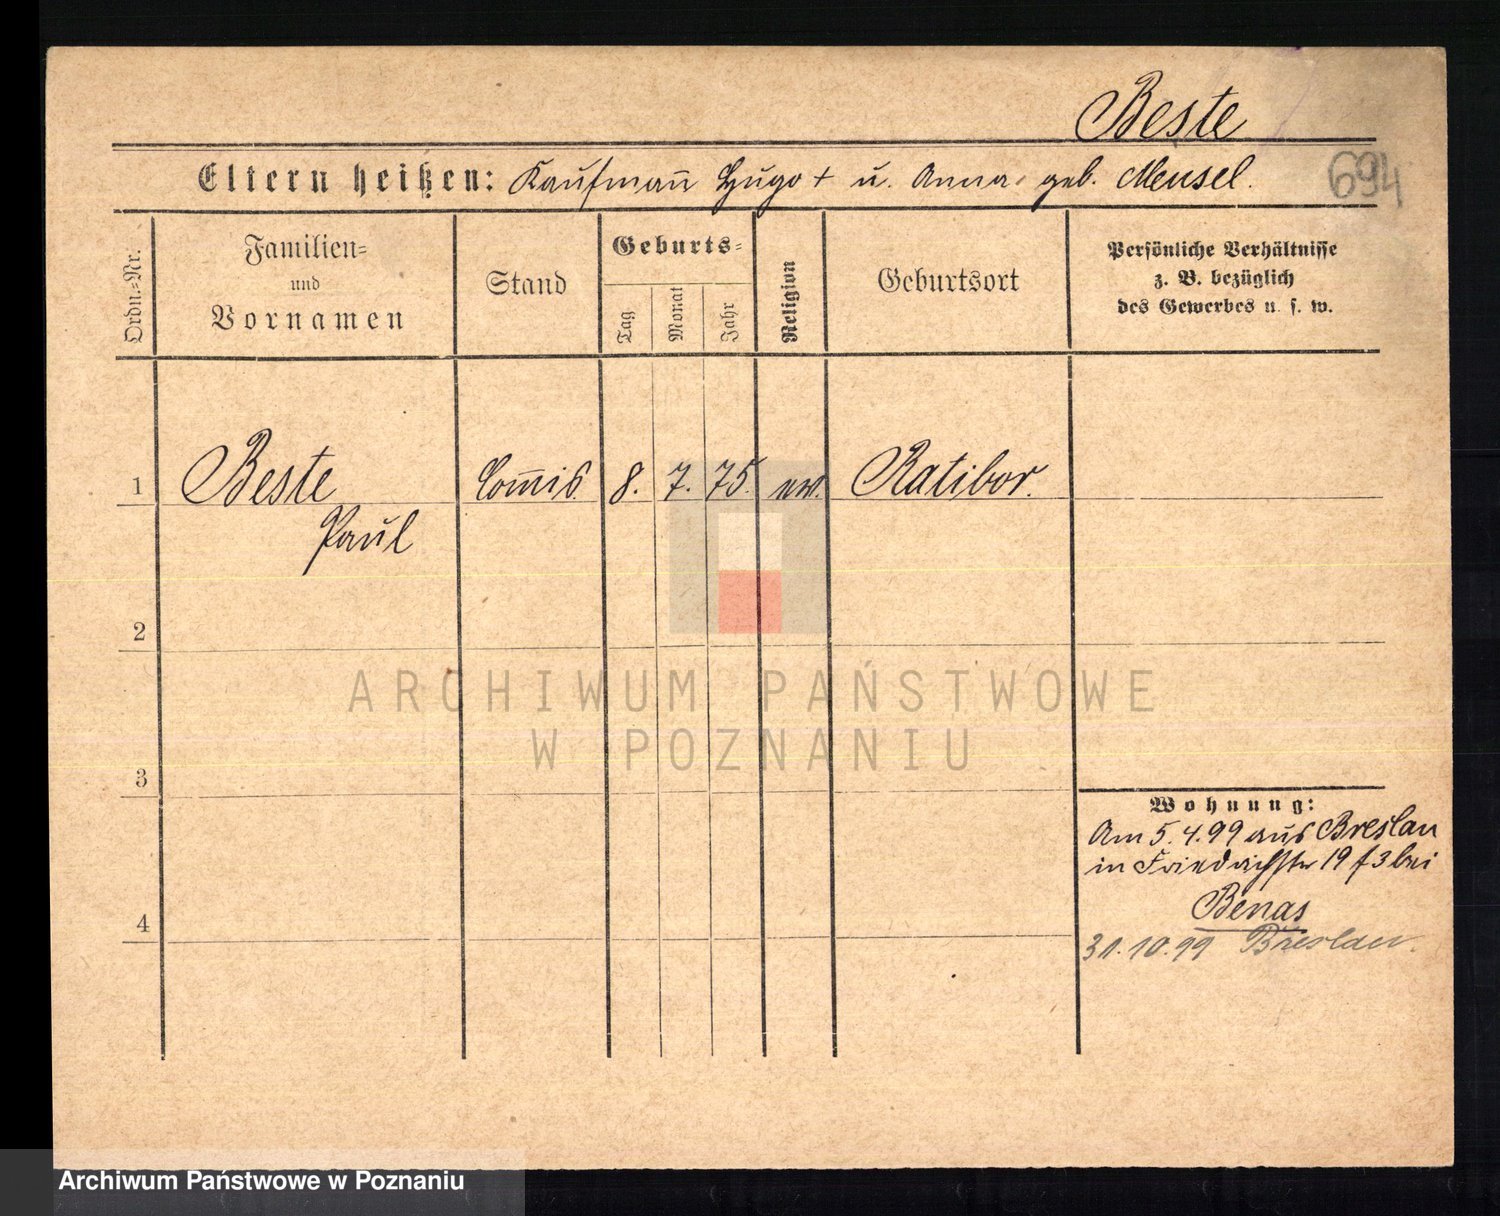 Beste
Eltern heißen: Kaufmañ Hugo + u. Anna geb. Mensel.
694
Ordn.=Nr.
Familien=
und
Vornamen
Stand
Geburts=
Tag
Monat
Jahr
Religion
Geburtsort
Persönliche Verhältnisse
z. B. bezüglich
des Gewerbes u. s. w.
1 Beste Com̄is 8. 7. 75. ev. Ratibor.
Paul
2
ARCHIWUM PAŃSTWOWE
W POZNANIU
3
Wohnung:
Am 5.4.99 aus Breslau
in Friedrichstr 19 f 3 bei
Benas
4
31.10.99 Breslau.
Archiwum Państwowe w Poznaniu